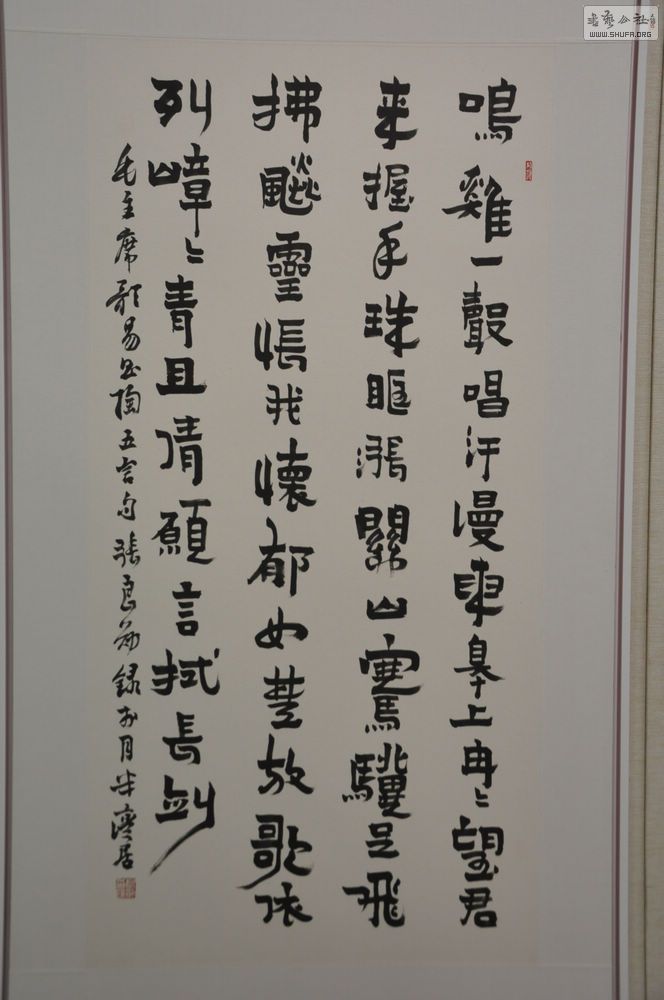 書藝公社
WWW.SHUFA.ORG
鳴雞一聲唱汗漫東皋上冉〻望君
来握手珠眶漲關山騫驥足飛
拂飇靈悵我懷郁如焚放歌依
列嶂〻青且倩願言拭長劍
毛主席歌易昌陶五言句張良勋録於月半灣居